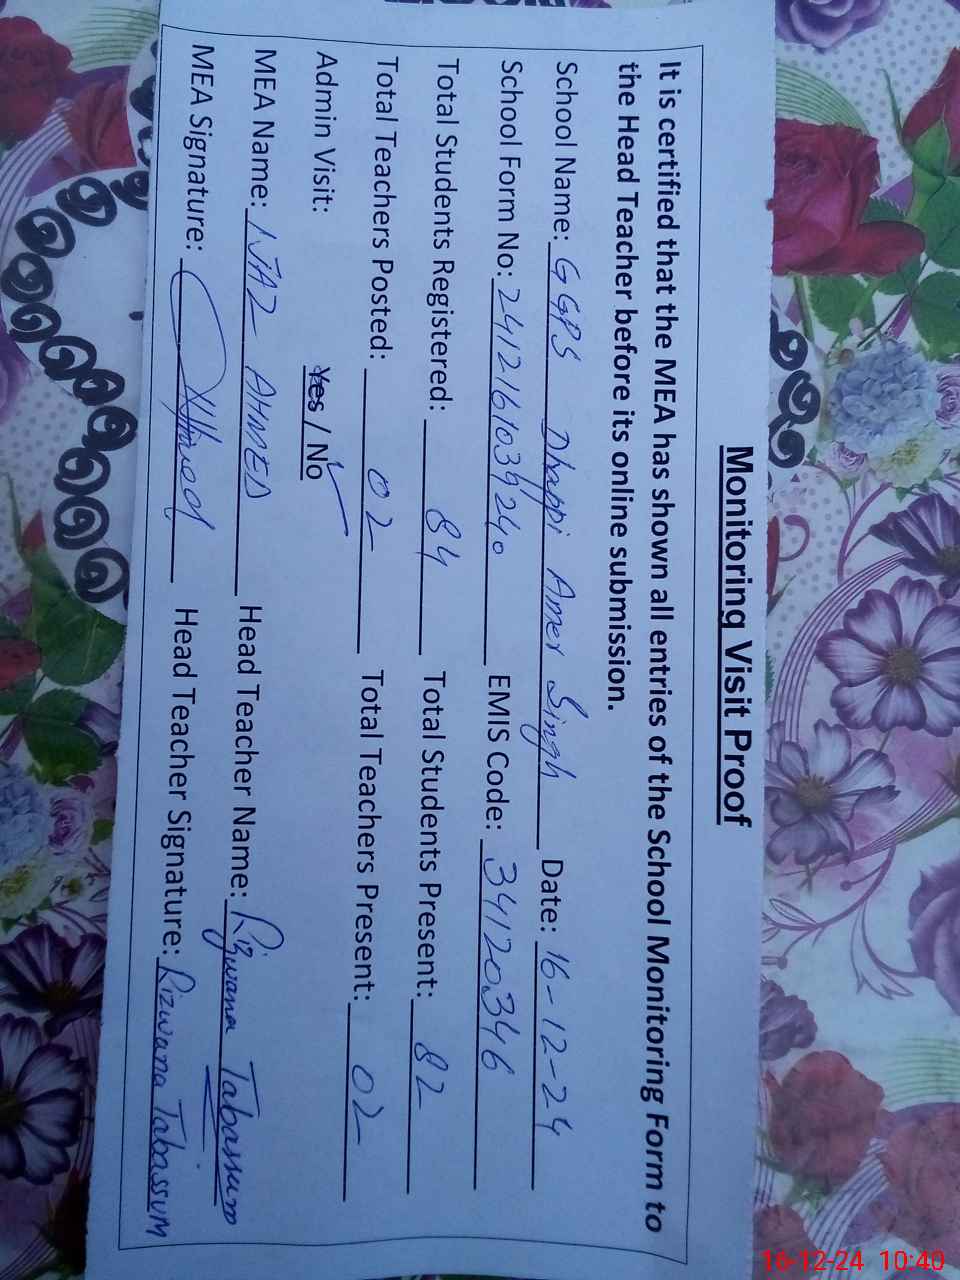 Monitoring Visit Proof
It is certified that the MEA has shown all entries of the School Monitoring Form to
the Head Teacher before its online submission.
School Name: GGPS Dhappi Amer Singh Date: 16-12-24
School Form No: 2412161039240 EMIS Code: 34120346
Total Students Registered: 84 Total Students Present: 82
Total Teachers Posted: 02 Total Teachers Present: 02
Admin Visit: Yes / No
MEA Name: NAZ AHMED Head Teacher Name: Rizwana Tabassum
MEA Signature: Head Teacher Signature: Rizwana Tabassum
16-12-24 10:40